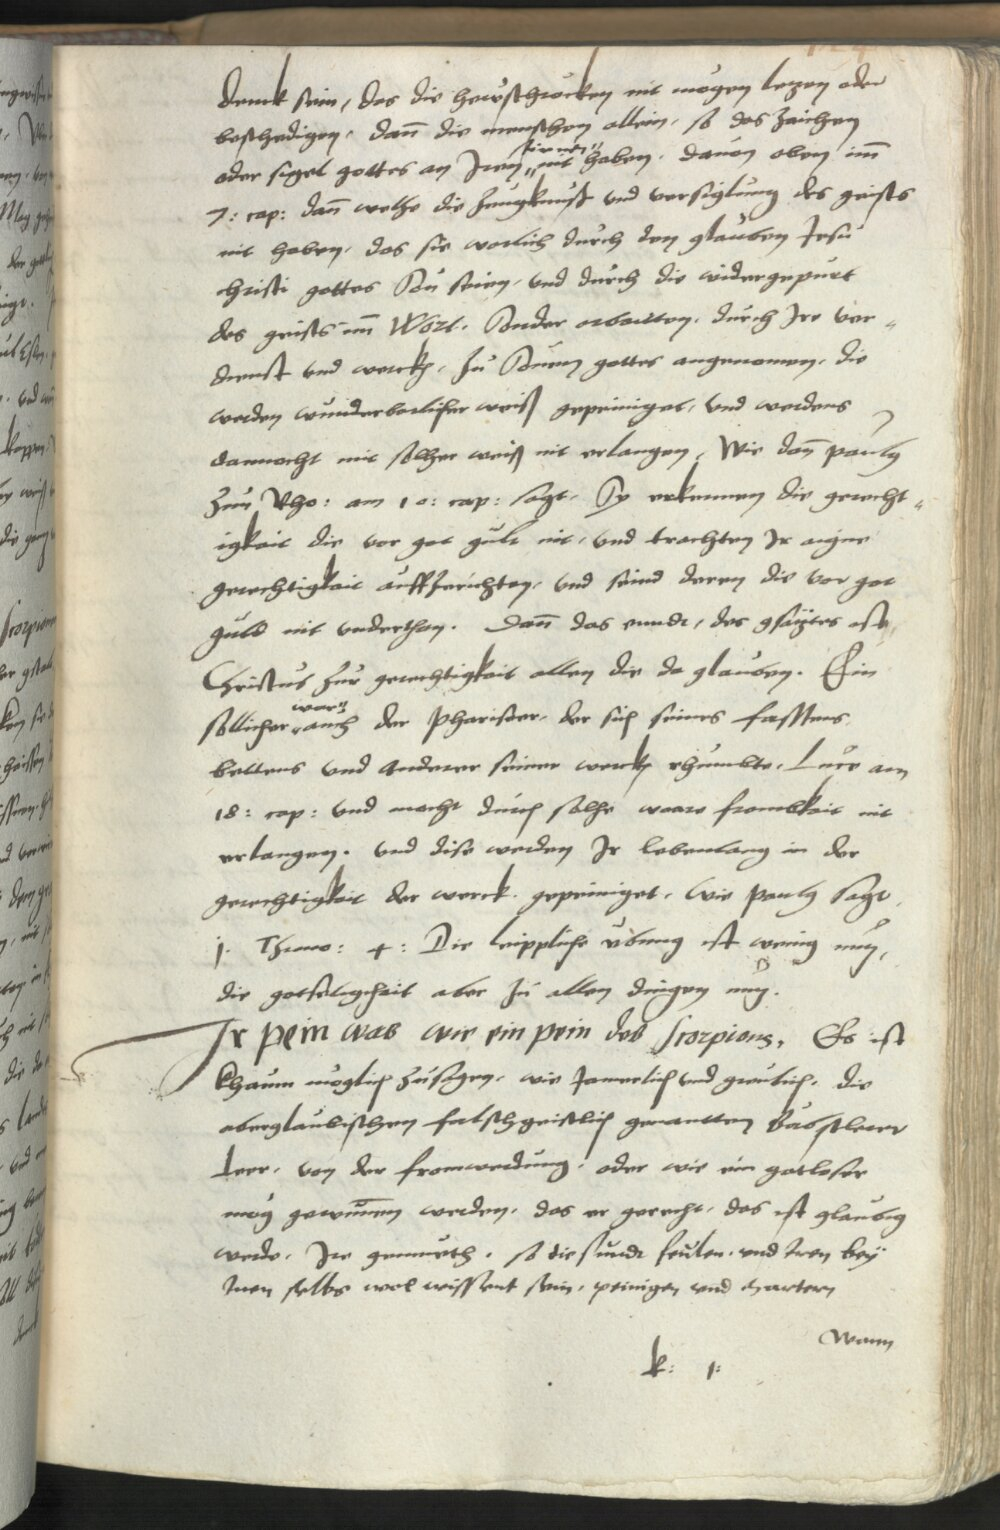 denck sein, das die hewschrocken nit mögen letzen oder
beschedigen, dann die menschen allein, so das zaichen
oder sigel gottes an Iren stirnen nit haben, dauon oben im̄
7: cap: dann welhe die Zeugknuß vnd versiglung des geists
nit haben, das sie warlich durch den glauben Jesu
christi gottes Sün seien, vnd durch die widergepurt
des geists im̄ Wort, Sonder arbaitten, durch Ire ver„
dienst vnd werckh, zu Sünen gottes angenomen, die
werden wunderbarlicher weiß gepeiniget, vnd werdens
dannocht mit solher weiß nit erlangen, Wie dan̄ paulus
zun Rho: am 10: cap: sagt, Sy erkennen die gerecht„
igkait die vor got gült nit, vnd trachten Ir aigne
gerechtigkait auffzerichten, vnd seind deren die vor got
güld nit vnderthan. Dan̄ das enndt, des gsatztes ist
Christus zur gerechtigkait allen die da glauben. Ein
söllicher war auch der Phariseer, der sich seines fasstens
bettens vnd anderer seiner werckh rhumbte, Luce am
18: cap: vnd mocht durch solhe ware frombkait nit
erlangen. vnd dise werden Ir lebenlang in der
gerechtigkait der werck gepeiniget, wie paulus sagt
1. Thimo: 4: Die leipplihe vbung ist wenig nutz,
die gotseligchait aber zu allen dingen nutz.
Ir pein was wie ein pein des scorpions, Es ist
khaum möglich zusagen, wie Jamerlich vnd greulich, die
aberglaubischen falschgeistlich genantten Bäbstleer
Leer, von der fromwerdung, oder wie ein gotloser
mög gewunnen werden, das er gerecht, das ist glaubig
werde, Ire gemueth, so die sundt feulen, vnd Iren bey
Inen selbs wol wissent sein, peinigen vnd martern
Wann
k: 1: